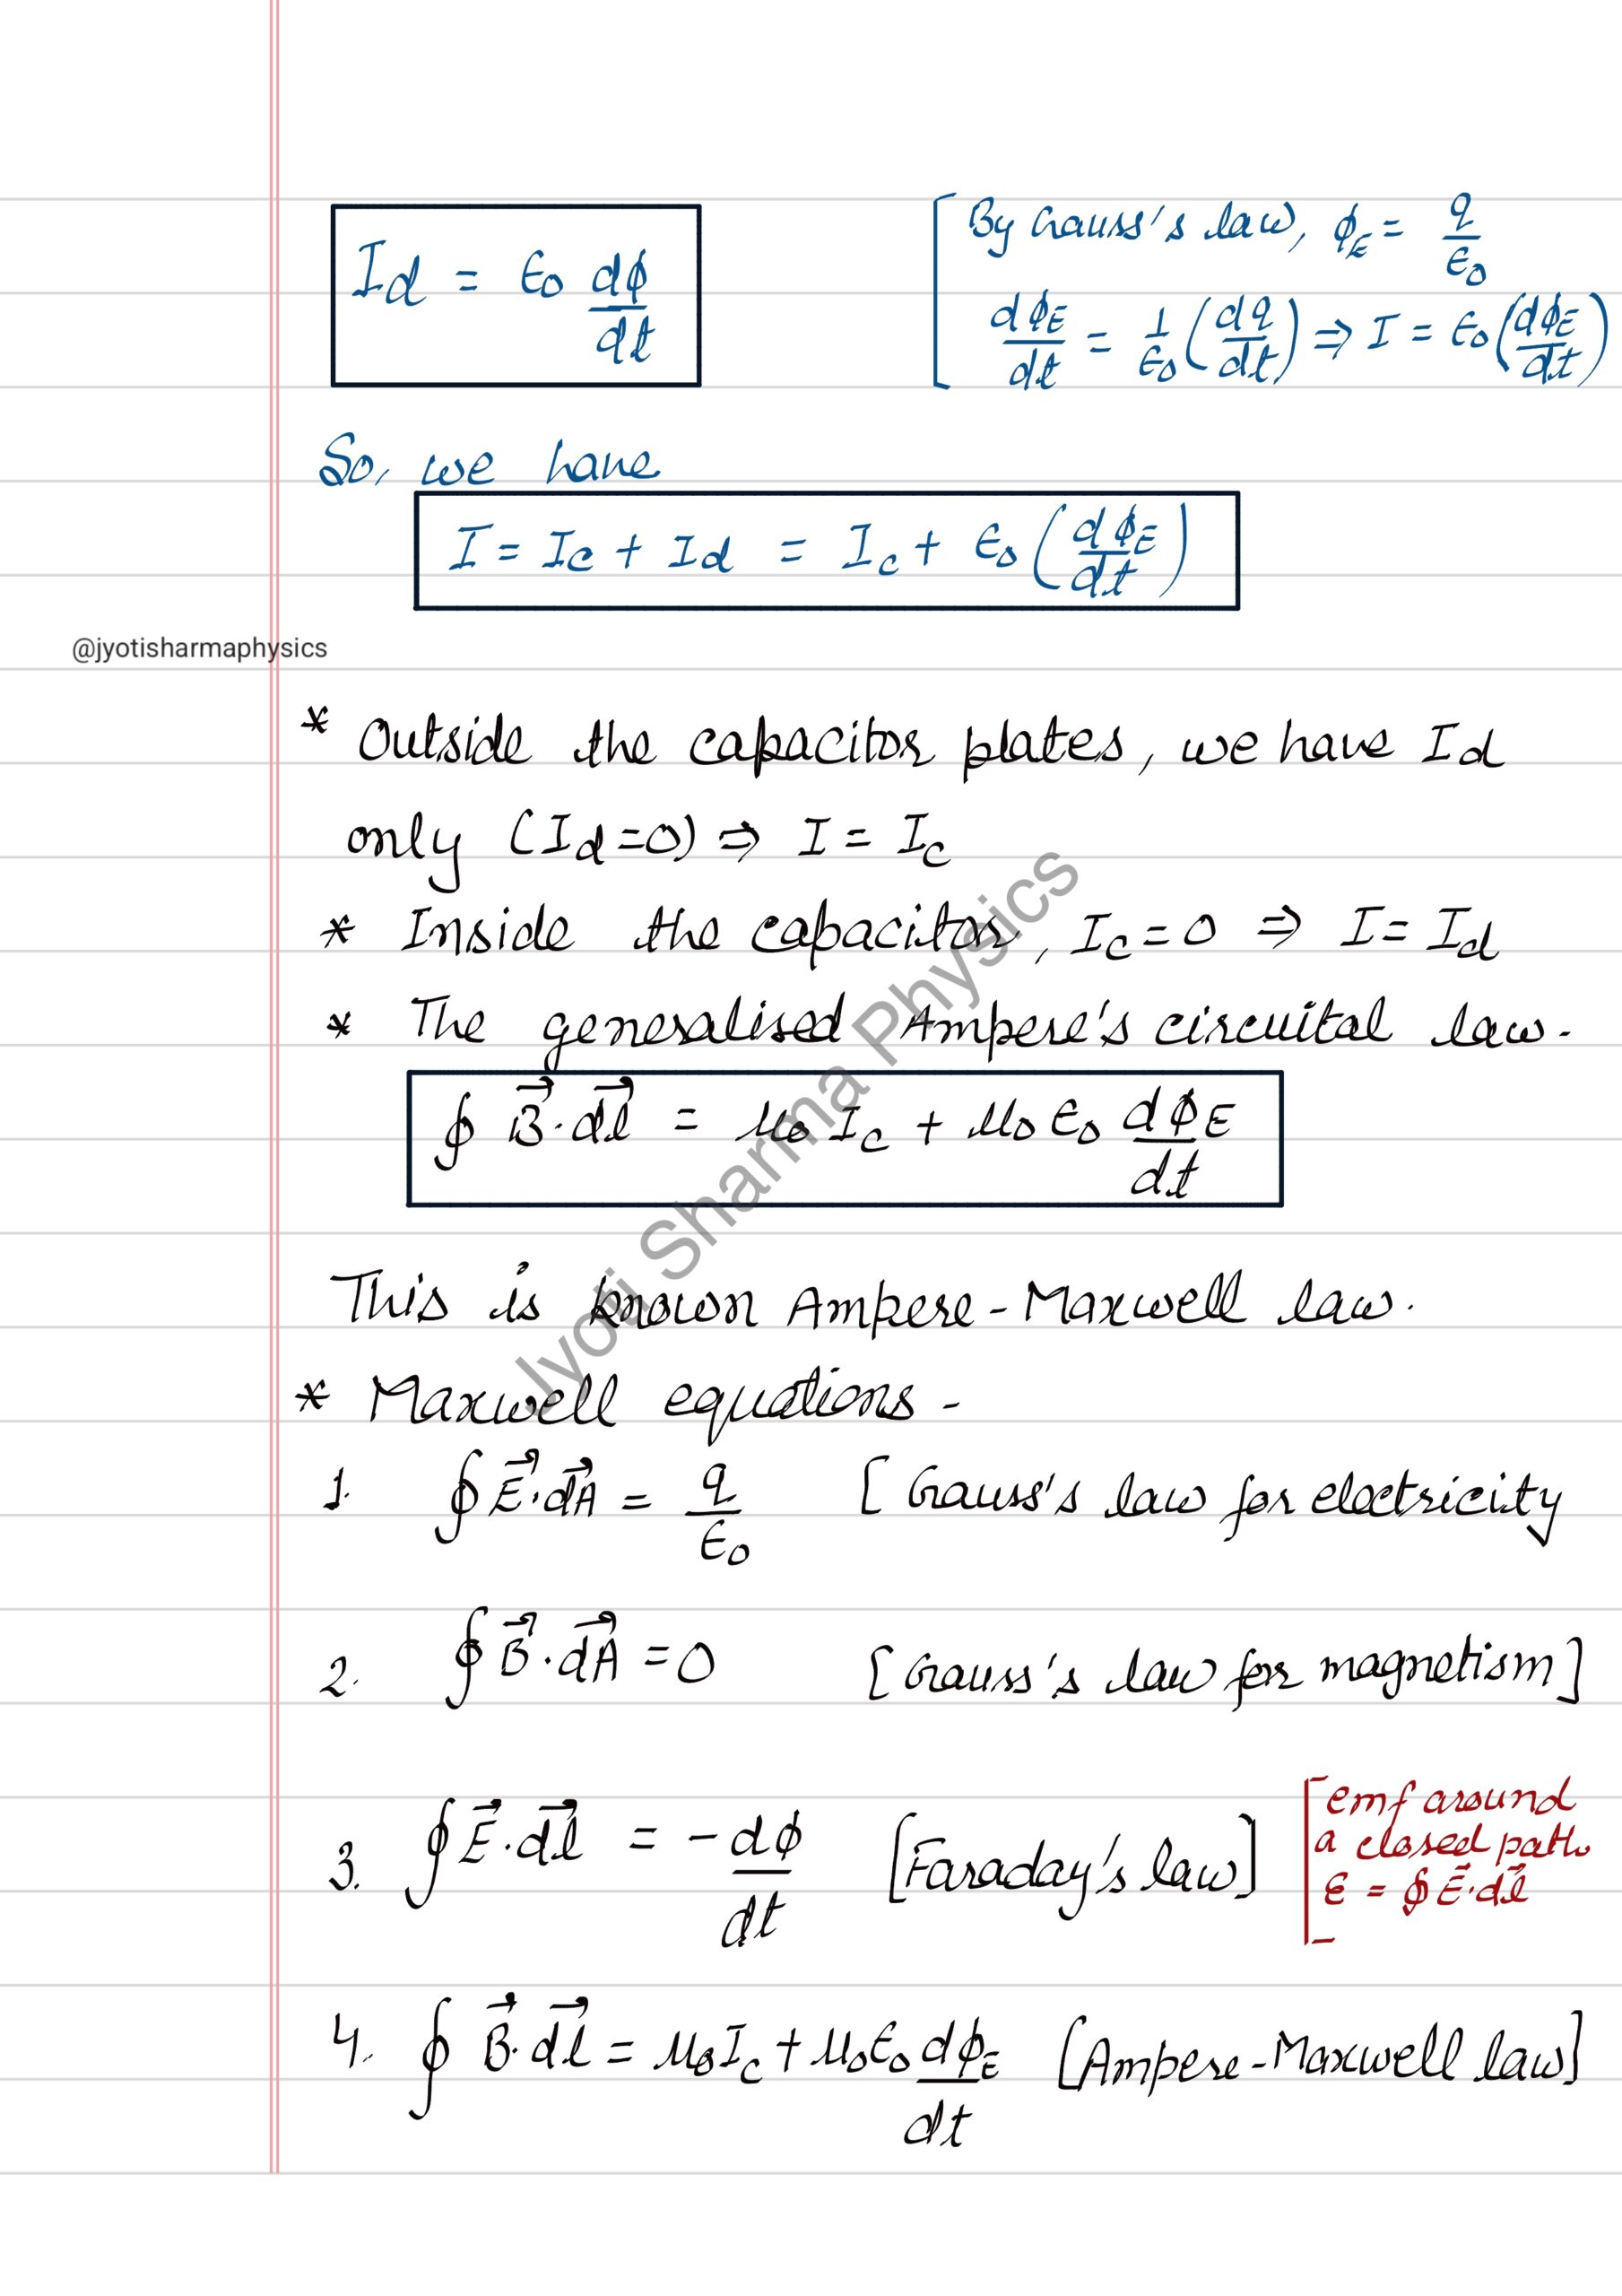 I_d = ε₀ dϕ/dt
[By Gauss's law, ϕ_E = q/ε₀
dϕ_E/dt = 1/ε₀ (dq/dt) ⇒ I = ε₀ (dϕ_E/dt)
So, we have
I = I_c + I_d = I_c + ε₀ (dϕ_E/dt)
@jyotisharmaphysics
* Outside the capacitor plates, we have I_d
only (I_d=0) ⇒ I = I_c
* Inside the capacitor, I_c = 0 ⇒ I = I_d
* The generalised Ampere's circuital law-
∮ B⃗·dl⃗ = μ₀ I_c + μ₀ ε₀ dϕ_E/dt
This is known Ampere-Maxwell law.
* Maxwell equations -
1. ∮ E⃗·dA⃗ = q/ε₀ [Gauss's law for electricity
2. ∮ B⃗·dA⃗ = 0 [Gauss's law for magnetism]
3. ∮ E⃗·dl⃗ = -dϕ/dt [Faraday's law]
[emf around
a closed path
ε = ∮ E⃗·dl⃗
4. ∮ B⃗·dl⃗ = μ₀I_c + μ₀ε₀ dϕ_E/dt [Ampere-Maxwell law]
Jyoti Sharma Physics